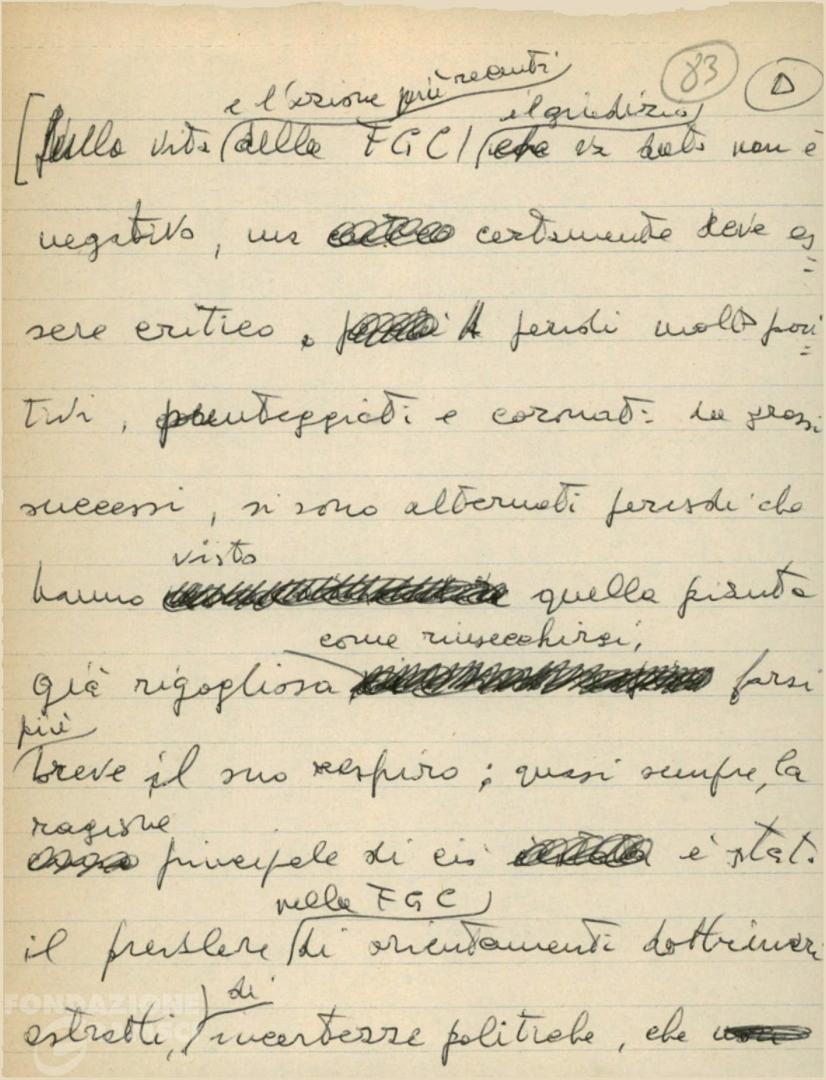 83 D
e l'azione più recenti
il giudizio
[Sulla vita della FGC che va dato non è
negativo, ma certamente deve es
sere critico. A periodi molto posi
tivi, punteggiati e coronati da grossi
successi, si sono alternati periodi che
visto
hanno quella pianta
come rinsecchirsi,
già rigogliosa farsi
più
breve il suo respiro; quasi sempre, la
ragione
principale di ciò è stata
nella FGC
il prevalere di orientamenti dottrinari
di
astratti, incertezze politiche, che
FONDAZIONE